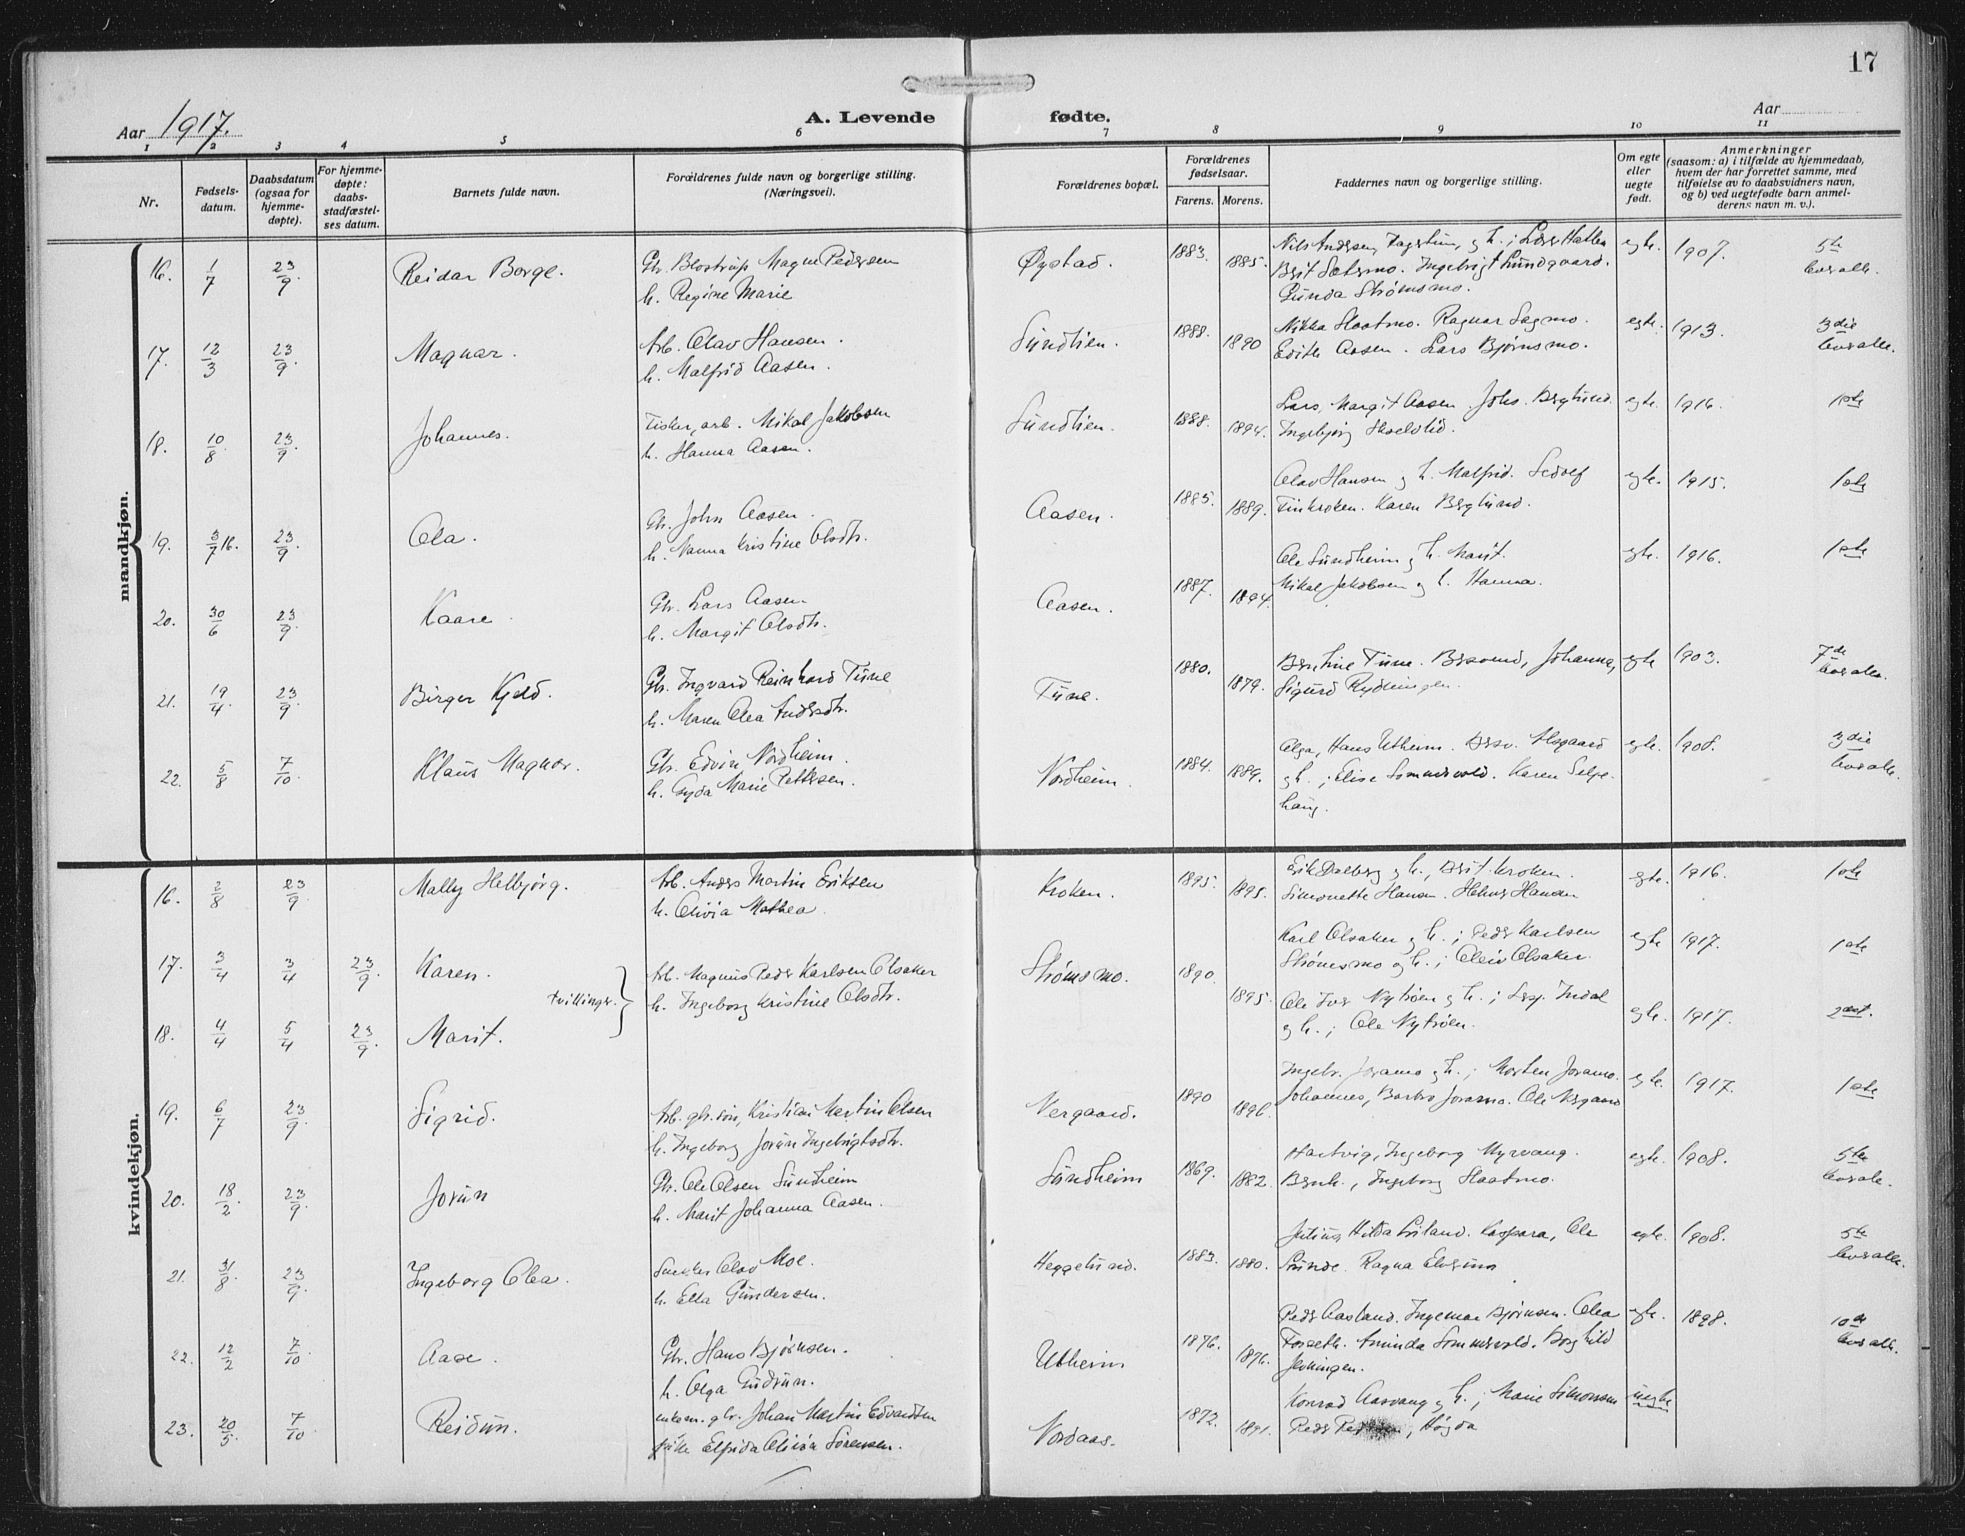 17
Aar 1917.
A. Levende fødte.
Aar
1 2 3 4 5 6 7 8 9 10 11
Nr.
Fødsels-
datum.
Daabsdatum
(ogsaa for
hjemme-
døpte).
For hjemme-
døpte:
daabs-
stadfæstel-
ses datum.
Barnets fulde navn.
Forældrenes fulde navn og borgerlige stilling.
(Næringsvei).
Forældrenes bopæl.
Forældrenes
fødselsaar.
Farens. Morens.
Faddernes navn og borgerlige stilling.
Om egte
eller
uegte
født.
Anmerkninger
(saasom: a) i tilfælde av hjemmedaab,
hvem der har forrettet samme, med
tilføielse av to daabsvidners navn,
og b) ved uegtefødte barn anmel-
derens navn m. v.).
mandkjøn.
16. 1/7 23/9 Reidar Borge.
Gbr. Magne Pedersen
h. Regine Marie
Øvstad. 1883. 1885.
Nils Andersen, h.;
Brit Sætermo. Ingebrigt Lundgaard.
Gunda Strømsmo.
egte. 1907. 5te
levs alle.
17. 12/3 23/9 Magnar.
Arb. Olav Hansen.
h. Malfrid Aasen.
Sundlien. 1888. 1890
Slaatmo. Ragnar Sagmo.
Edith Aasen. Lars Bjørnsmo.
egte. 1913. 3die
levs alle.
18. 10/8 23/9 Johannes.
Fisker, arb. Mikal Jakobsen
h. Hanna Aasen.
Sundlien. 1888. 1894.
Lars, Margit Aasen Johs. Berglund.
Ingebjørg
egte. 1916. 1ste
19. 3/7 16. 23/9 Ola.
Gbr. John Aasen.
h. Nanna Kristine Olsdtr.
Aasen. 1885. 1889.
Olav Hansen og h. Malfrid.
Finkroken. Karen Berglund.
egte. 1915. 1ste
20. 30/6 23/9 Kaare.
Gbr. Lars Aasen
h. Margit Olsdtr.
Aasen. 1887. 1894.
Ole Sundheim og h. Marit.
Mikal Jakobsen og h. Hanna.
egte. 1916. 1ste
21. 19/4 23/9 Birger Kjeld.
Gbr. Ingvard Reinhard Tune
h. Maren Olea Andersdtr.
Tune. 1880. 1879.
Berntine Tune. Johanna,
Sigurd Rydningen.
egte 1903. 7de
levs alle.
22. 5/8 7/10 Klaus Magnar.
Gbr. Edvin Nordheim.
h. Gyda Marie Pettersen.
Nordheim. 1884. 1889.
Olga, Hans Utheim.
og h.; Elise Sommersvold. Karen Selje-
haug.
egte. 1908. 3die
levs alle.
kvindekjøn.
16. 2/8 23/9 Mally Helbjørg.
Arb. Anders Martin Eriksen
h. Olivia Mathea.
Kroken. 1895. 1895.
Erik Dalberg og h., Brit Kroken.
Simonette Hansen. Hansen
egte. 1916. 1ste
17. 3/4 3/4 23/9 Karen.
tvillinger.
Arb. Magnus Peder Karlsen Olsaker
h. Ingeborg Kristine Olsdtr.
Strømsmo. 1890. 1895.
Karl Olsaker og h.; Peder Karlsen
Strømsmo og h.; Olsaker.
egte 1917. 1ste
18. 4/4 5/4 23/9 Marit.
Ole Iver Nytrøen og h.;
og h.; Ole Nytrøen.
egte. 1917. 2det.
19. 6/7 23/9 Sigrid.
Arb. gbr. søn, Kristian Martin Olsen
h. Ingeborg Jorun Ingebrigtsdtr.
Nergaard. 1890 1896.
Ingebr. Joramo og h.; Morten Joramo.
Johannes, Barbro Joramo. Ole Nergaard
egte. 1917. 1ste
20. 18/2 23/9 Jorun
Gbr. Ole Olsen Sundheim
h. Marit Johanna Aasen.
Sundheim 1869. 1882.
Hartvig, Ingeborg Myrvang.
Bernh., Ingeborg Slaatmo.
egte. 1908. 5te
levs alle.
21. 31/8 23/9 Ingeborg Olea.
Snekker Olav Moe.
h. Ella Gundersen.
Heggelund. 1883. 1880.
Julius, Hilda Kaspara, Ole
Strunde. Ragna
egte. 1908. 5te
levs alle.
22. 12/2 7/10 Aase.
Gbr. Hans Bjørnsen.
h. Olga Gudrun.
Utheim 1876. 1876.
Peder Aasland. Ingemar Bjørnsen. Olea
Forseth. Aminda Sommersvold. Borghild
egte. 1898. 10de
levs alle.
23. 20/5 7/10 Reidun.
enkem. gbr. Johan Martin Edvardsen
pike Elfrida Olivia Sørensen.
Nordaas. 1872. 1891.
Konrad Aasvang og h.; Marie Simonsen
Peder Høgda
uegte